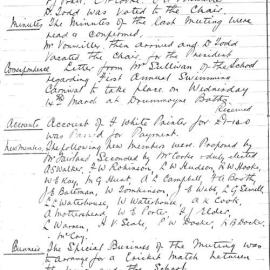 Mr Dodd was voted to the Chair.
Minutes The Minutes of the last Meeting were
read & confirmed.
Mr then arrived and Mr Dodd
vacated the Chair for the President
Correspondence Letter from Mr Sullivan of the School
regarding First Annual Swimming
Carnival to take place on Wednesday
14th March at Drummoyne Baths.
Received
Accounts Account of H White Printer for
was Passed for Payment.
New Members The following new Members were Proposed by
Mr Seconded by Mr Cooke & duly elected
Walker. Dickinson, L W Hudson, Hooke,
W E Kay, A G Hunt, A C Campbell, Booth,
J E Bateman, W Tomkinson, J E Webb, L G Sewell,
Waterhouse, W Waterhouse, A K Cook,
A Motherhead, W E Porter, H J Elder,
L Warren, H V Seale, P W Docker,
McKay.
Business The Special Business of the Meeting was
to arrange for a Cricket Match between
the and the School